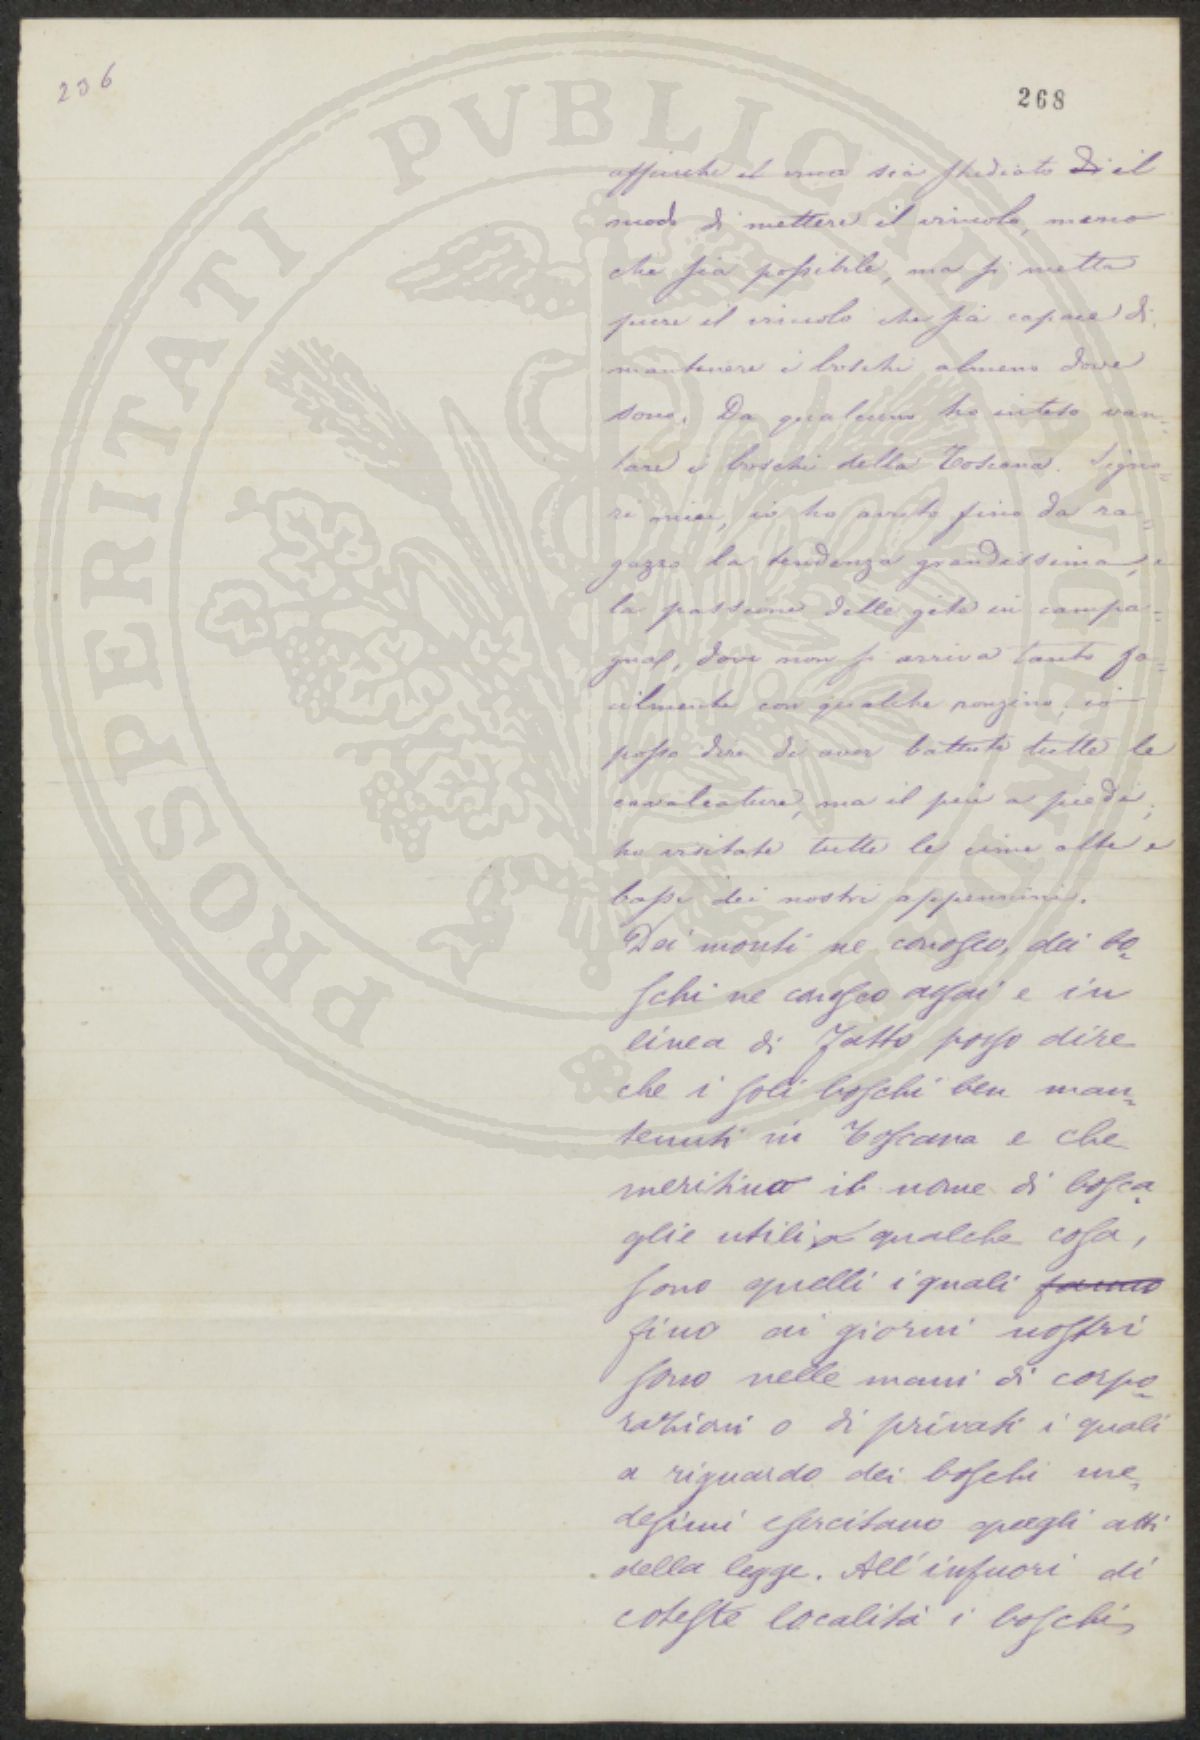 236
268
affinché si trovi sia studiato di il
modo di mettere il vincolo, meno
che sia possibile, ma si metta
pure il vincolo che sia capace di
mantenere i boschi almeno dove
sono. Da qualcuno ho inteso van-
tare i boschi della Toscana. Signo-
ri miei, io ho avuto fino da ra-
gazzo la tendenza grandissima, e
la passione delle gite in campa-
gna, dove non si arriva tanto fa-
cilmente con qualche ronzino; io
posso dire di aver battute tutte le
cavalcature, ma il più a piedi,
ho visitate tutte le cime alte e
basse dei nostri appennini.
Dei monti ne conosco, dei bo-
schi ne conosco assai e in
linea di fatto posso dire
che i soli boschi ben man-
tenuti in Toscana e che
meritino il nome di bosca-
glie utili a qualche cosa,
sono quelli i quali fanno
fino ai giorni nostri
sono nelle mani di corpo-
razioni o di privati i quali
a riguardo dei boschi me-
desimi esercitano quegli atti
della legge. All'infuori di
coteste località i boschi
PROSPERITATI PVBLICAE